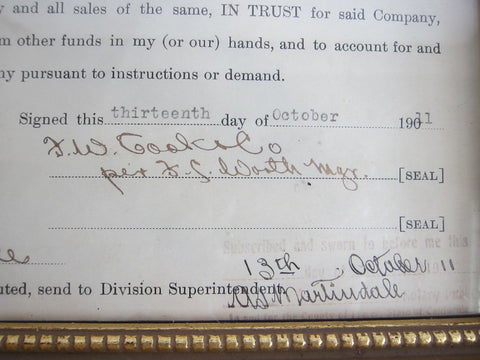 y and all sales of the same, IN TRUST for said Company,
m other funds in my (or our) hands, and to account for and
ny pursuant to instructions or demand.
Signed this thirteenth day of October 1911
F. W. Cook & Co
per F. S. Worth Mgr. [SEAL]
[SEAL]
Subscribed and sworn to before me this
13th day October 11
uted, send to Division Superintendent.
Martindale